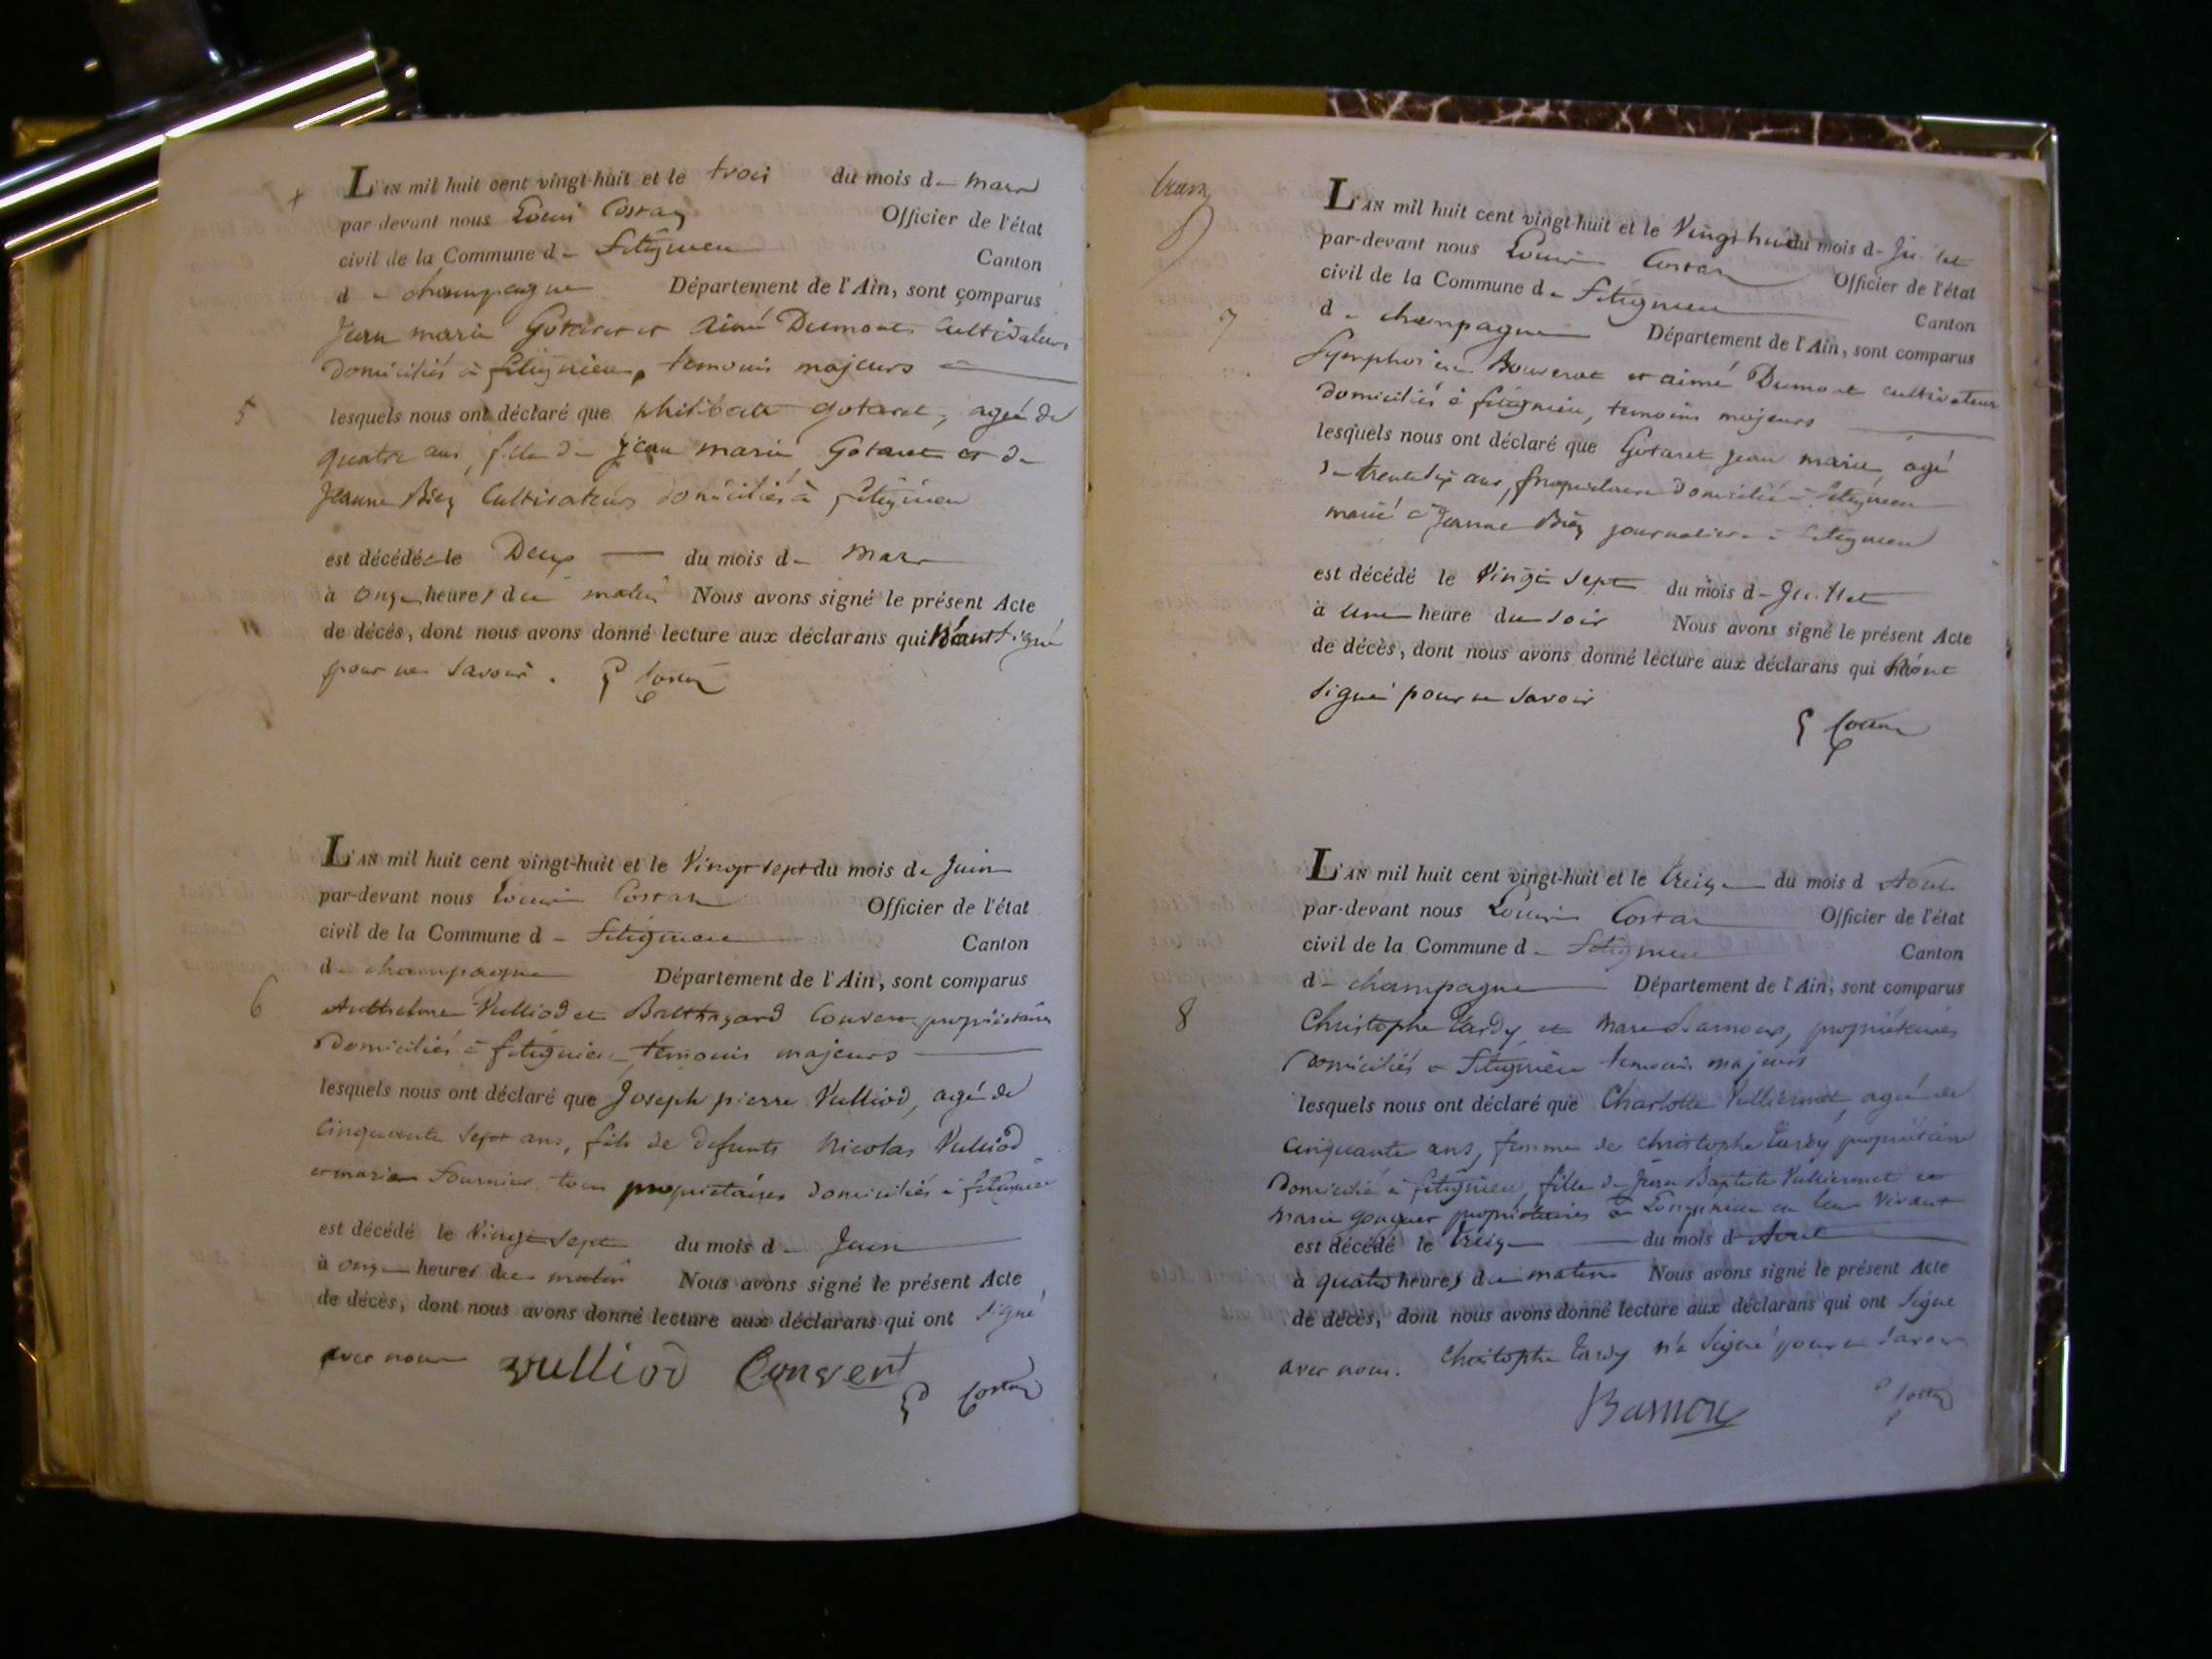 L'AN mil huit cent vingt-huit et le trois du mois de mars
par-devant nous Louis Costaz Officier de l'état
civil de la Commune de fitignieu Canton
de champagne Département de l'Ain, sont comparus
Jean marie Gotaret et aimé Dumont Cultivateurs
domiciliés à fitignieu, temoins majeurs
5
lesquels nous ont déclaré que philiberte gotaret, agée de
quatre ans, fille de jean marie Gotaret et de
Jeanne Biez Cultivateurs domiciliés à fitignieu
est décédée le Deux du mois de mars
à onze heures du matin Nous avons signé le présent Acte
de décés, dont nous avons donné lecture aux déclarans qui n'ont signé
pour ne Savoir.
L'AN mil huit cent vingt-huit et le Vingt sept du mois de Juin
par-devant nous Louis Costaz Officier de l'état
civil de la Commune de fitignieu Canton
de champagne Département de l'Ain, sont comparus
6
Anthelme Vulliod et Balthazard Convert propriétaires
Domiciliés à fitignieu, témoins majeurs
lesquels nous ont déclaré que Joseph pierre Vulliod, agé de
Cinquante Sept ans, fils de defunts Nicolas Vulliod
et marie Fournier tous propriétaires domiciliés à fitignieu
est décédé le Vingt Sept du mois de Juin
à onze heures du matin Nous avons signé le présent Acte
de décès, dont nous avons donné lecture aux déclarans qui ont Signé
avec nous vulliod Convert
L Costaz
L'AN mil huit cent vingt-huit et le Vingt huit du mois de Juillet
par-devant nous Louis Costaz Officier de l'état
civil de la Commune de fitignieu Canton
de champagne Département de l'Ain, sont comparus
7
Symphorien Bouverat et aimé Dumont cultivateurs
domiciliés à fitignieu, temoins majeurs
lesquels nous ont déclaré que Gotaret jean marie, agé
de trente six ans, propriétaire domicilié à fitignieu
marié à Jeanne Biez journalière à fitignieu
est décédé le Vingt Sept du mois de Juillet
à une heure du soir Nous avons signé le présent Acte
de décès, dont nous avons donné lecture aux déclarans qui n'ont
Signé pour ne Savoir
L Costaz
L'AN mil huit cent vingt-huit et le treize du mois d Aout
par-devant nous Louis Costaz Officier de l'état
civil de la Commune de fitignieu Canton
de champagne Département de l'Ain, sont comparus
8
Christophe tardy et propriétaires
Domiciliés à fitignieu temoins majeurs
lesquels nous ont déclaré que Charlotte Vulliermet, agée de
Cinquante ans, femme de christophe tardy propriétaire
Domicilié à fitignieu, fille de Jean Baptiste Vulliermet et
marie propriétaires à en leur Vivant
est décédé le treize du mois d Aout
à quatre heures du matin Nous avons signé le présent Acte
de décès, dont nous avons donné lecture aux déclarans qui ont Signé
avec nous. Christophe tardy n'a Signé pour ne Savoir
L Costaz